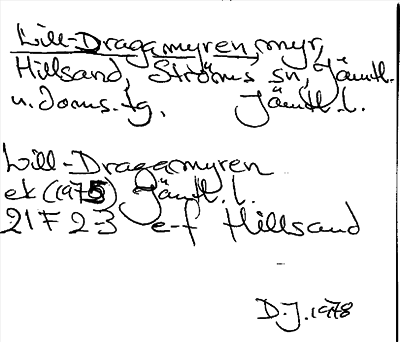 Lill-Dragamyren, myr,
Hillsand, Ströms sn, Jämtl.
n. doms. tg. Jämtl. l.
Lill-Dragamyren
ek (1975) Jämtl. l.
21 F 2-3 e-f Hillsand
D.J. 1978